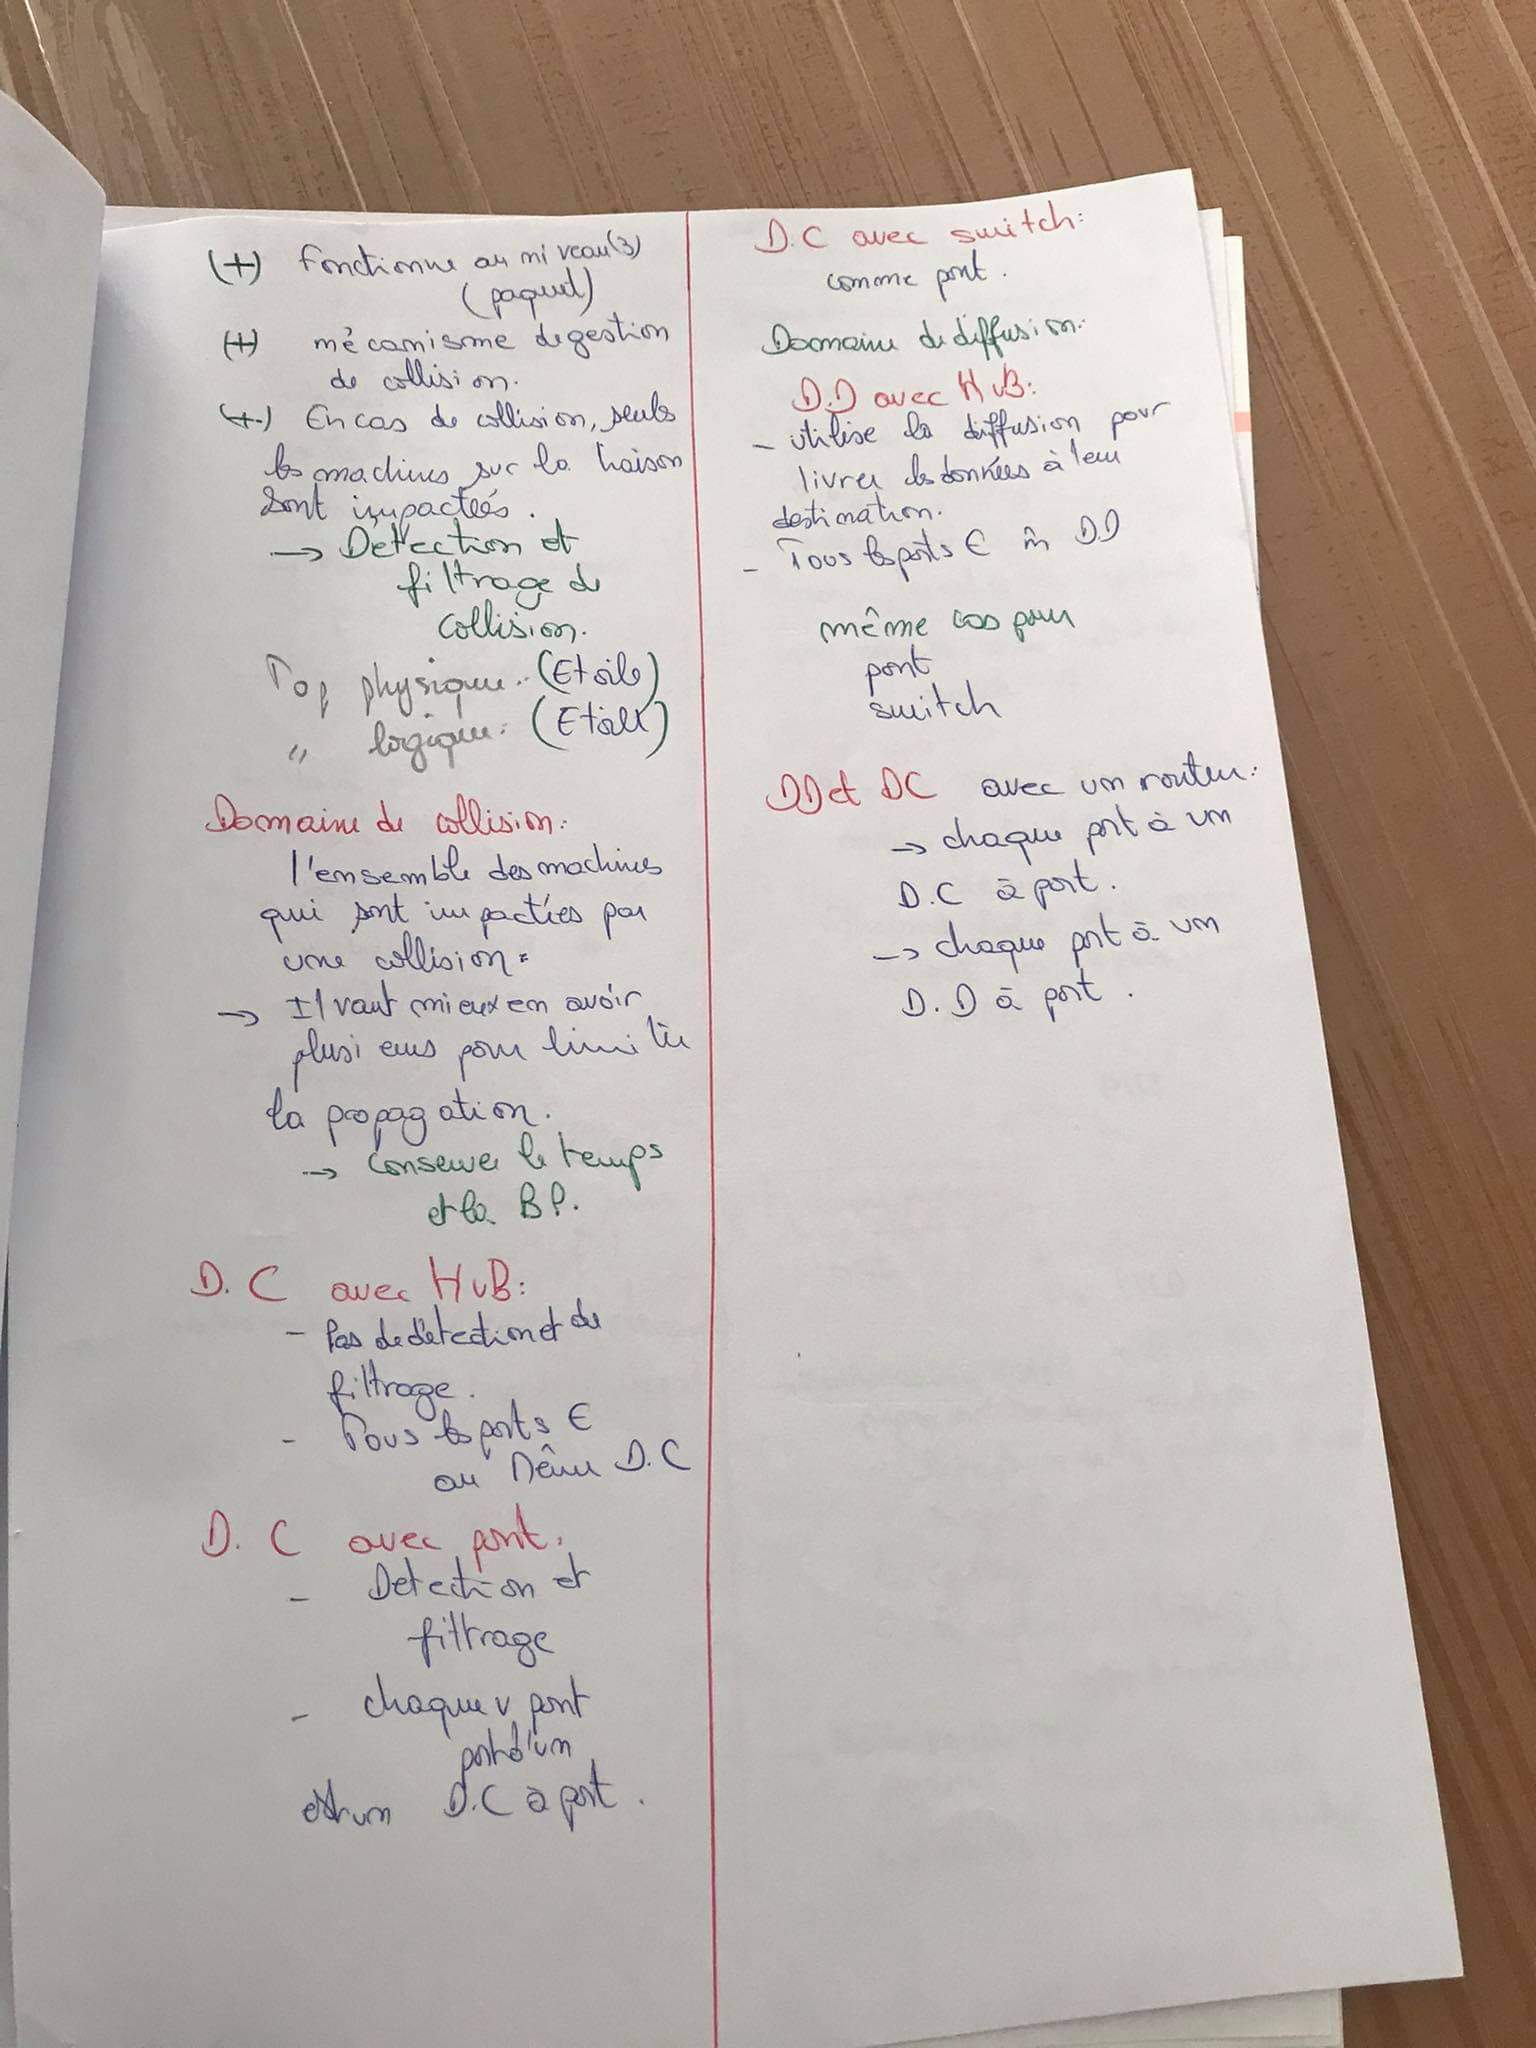 (+) Fonctionne au niveau(3)
(paquet)
(+) mécanisme de gestion
de collision.
(+) En cas de collision, seuls
les machines sur la liaison
sont impactées.
→ Détection et
filtrage de
collision.
Top physique: (Etoile)
" logique: (Etoile)
Domaine de collision:
l'ensemble des machines
qui sont impactées par
une collision.
→ Il vaut mieux en avoir
plusieurs pour limiter
la propagation.
→ Conserver le temps
et la BP.
D.C avec HUB:
- Pas de détection et de
filtrage.
- Tous les ports ∈
au même D.C
D.C avec pont:
- Detection et
filtrage
- chaque v pont
port d'un
est un D.C à port.
D.C avec switch:
comme pont.
Domaine de diffusion:
D.D avec HUB:
- utilise la diffusion pour
livrer les données à leur
destination.
- Tous les ports ∈ m̂ D.D
même cas pour
pont
switch
DD et DC avec un router:
→ chaque port à un
D.C à port.
→ chaque port à un
D.D à port.